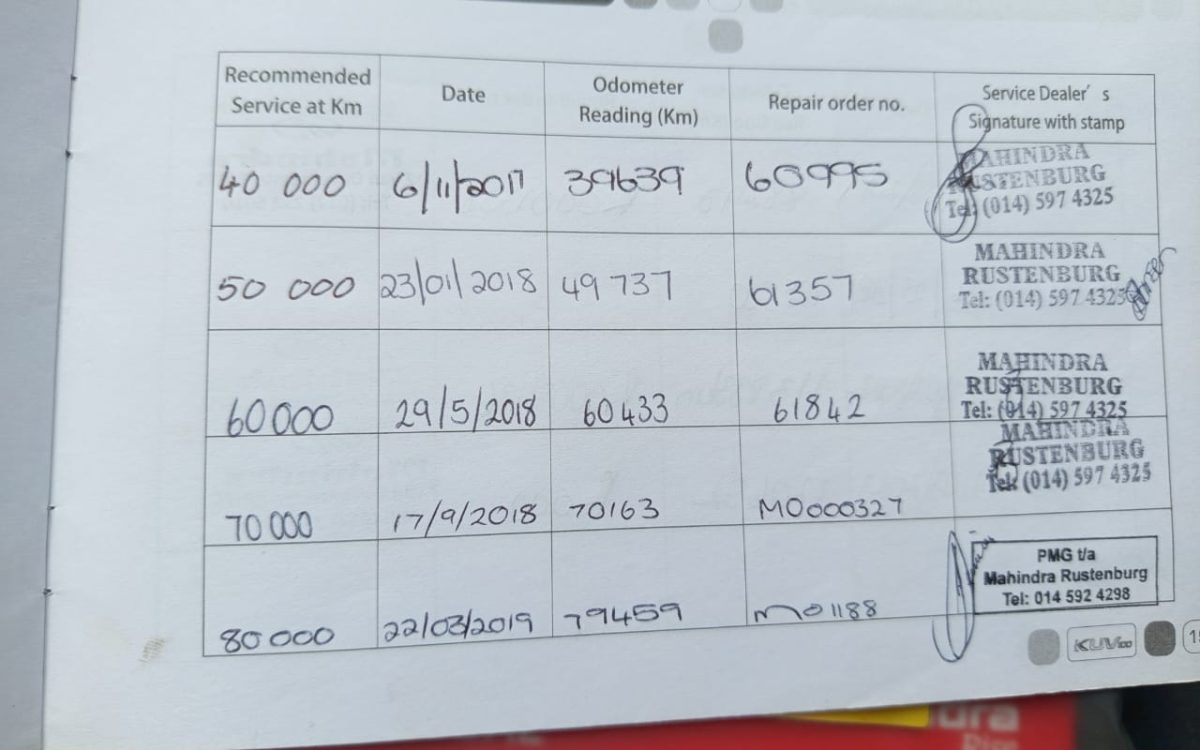 Recommended Service at Km
Date
Odometer Reading (Km)
Repair order no.
Service Dealer's Signature with stamp
40 000 6/11/2017 39639 60995
MAHINDRA
RUSTENBURG
Tel: (014) 597 4325
50 000 23/01/2018 49 737 61357
MAHINDRA
RUSTENBURG
Tel: (014) 597 4325
60000 29/5/2018 60433 61842
MAHINDRA
RUSTENBURG
Tel: (014) 597 4325
70 000 17/9/2018 70163 MO000327
MAHINDRA
RUSTENBURG
Tel: (014) 597 4325
80 000 22/03/2019 79459 MO1188
PMG t/a
Mahindra Rustenburg
Tel: 014 592 4298
KUV100